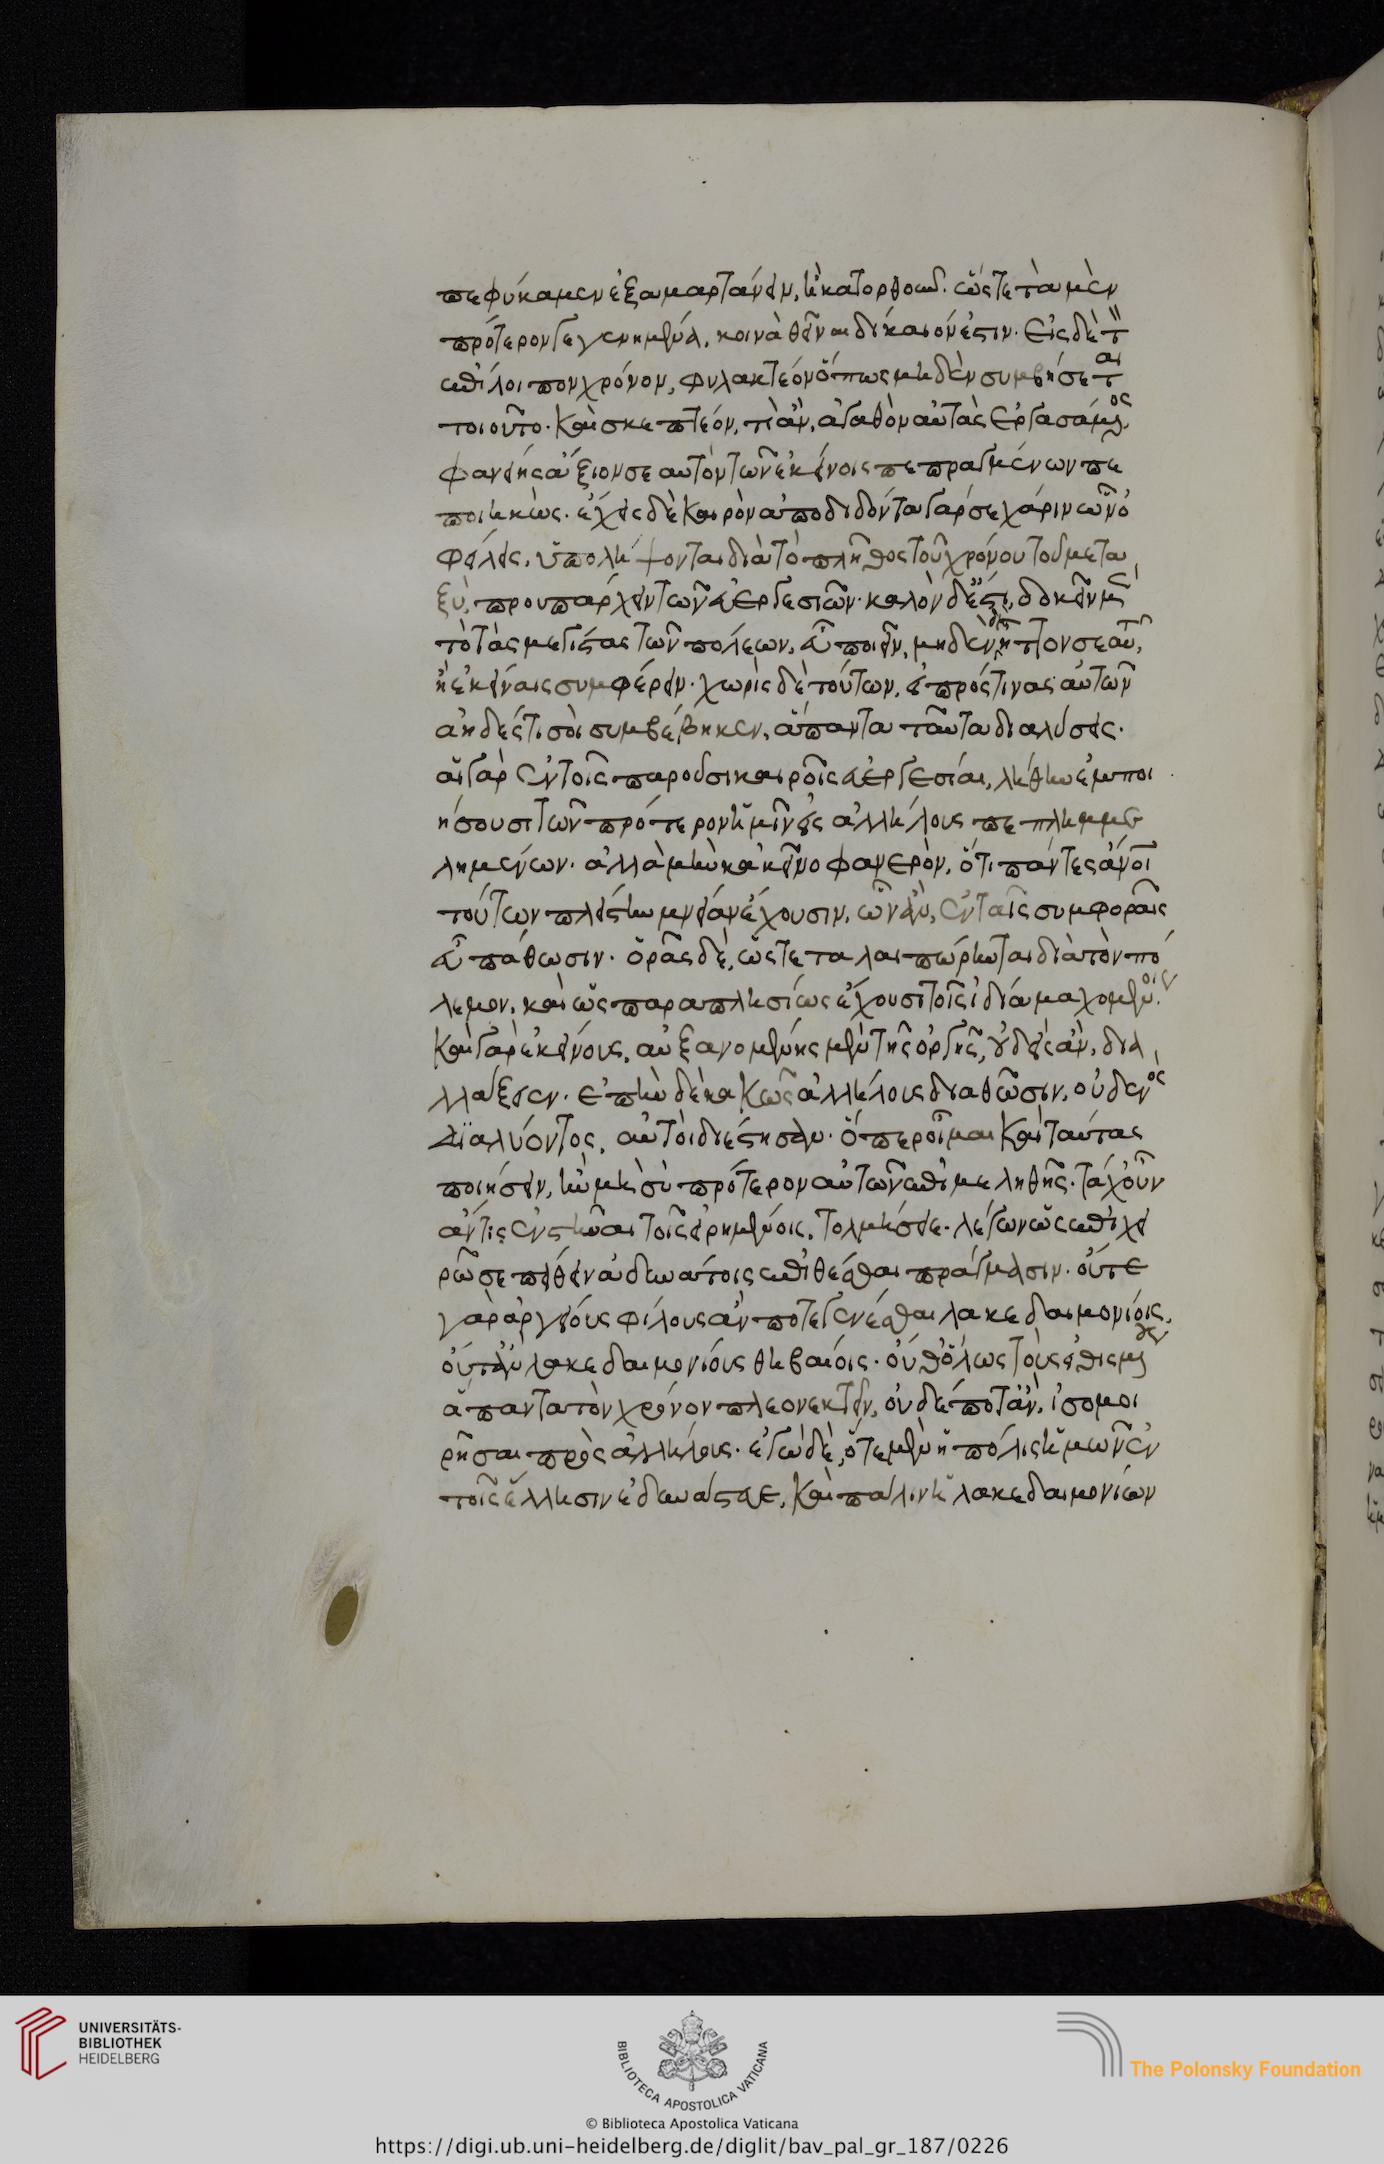 πεφύκαμεν ἐξαμαρτάνειν, ἢ κατορθοῦν. ὥστε τὰ μὲν
πρότερον γεγενημένα, κοινὰ θεῖναι δίκαιόν ἐστιν. Εἰς δὲ τὸν
ἐπίλοιπον χρόνον, φυλακτέον ὅπως μηδὲν συμβήσεται
τοιοῦτο. καὶ σκεπτέον, τί ἂν, ἀγαθὸν αὐτὰς ἐργασάμενος,
φανείης ἄξιον σεαυτὸν τῶν ἐκείνοις πεπραγμένων πε
ποιηκώς. ἔχεις δὲ καιρὸν ἀποδιδόντα γάρ σε χάριν ὧν ὀ
φείλεις, ὑπολήψονται διὰ τὸ πλῆθος τοῦ χρόνου τοῦ μετα
ξύ, προυπάρχειν τῶν εὐεργεσιῶν. καλὸν δέ ἐστι, δοκεῖν μὲν
τὸ τὰς μεγίστας τῶν πόλεων, εὖ ποιεῖν, μηδὲν δὲ ἧττον σεαυτὸν,
ἢ ἐκείναις συμφέρειν. χωρὶς δὲ τούτων, εἰ πρός τινας αὐτῶν
ἀηδές τι σοι συμβέβηκεν, ἅπαντα ταῦτα διαλύσεις.
αἱ γὰρ ἐν τοῖς παροῦσι καιροῖς εὐεργεσίαι, λήθην ἐμποι
ήσουσι τῶν πρότερον ἡμῖν εἰς ἀλλήλους πεπλημμε
λημένων. ἀλλὰ μὴν κἀκεῖνο φανερὸν, ὅτι πάντες ἄνθρωποι
τούτων πλείστην μνείαν ἔχουσιν, ὧν ἂν, ἐν ταῖς συμφοραῖς
εὖ πάθωσιν. ὁρᾷς δὲ, ὥς τεταλαιπώρηνται διὰ τὸν πό
λεμον, καὶ ὡς παραπλησίως ἔχουσι τοῖς ἰδίᾳ μαχομένοις.
καὶ γὰρ ἐκείνους, αὐξανομένης μὲν τῆς ὀργῆς, οὐδεὶς ἂν, δια
λλάξειεν. ἐπὴν δὲ κακῶς ἀλλήλους διαθῶσιν, οὐδενὸς
διαλύοντος, αὐτοὶ διέστησαν. ὅπερ οἶμαι καὶ ταύτας
ποιήσειν, ἢν μὴ σὺ πρότερον αὐτῶν ἐπιμεληθῇς. τάχ' οὖν
ἄν τις ἐνστῆναι τοῖς εἰρημένοις, τολμήσειε. λέγων ὡς ἐπιχει
ρῶ σε πείθειν ἀδυνάτοις ἐπιθέσθαι πράγμασιν. οὔτε
γὰρ ἀργείους φίλους ἄν ποτε γενέσθαι λακεδαιμονίοις,
οὔτ' ἂν λακεδαιμονίους θηβαίοις. οὔθ' ὅλως τοὺς εἰθισμένους
ἅπαντα τὸν χρόνον πλεονεκτεῖν, οὐδέποτ' ἂν, ἰσομοι
ρῆσαι πρὸς ἀλλήλους. ἐγὼ δὲ, ὅτε μὲν ἡ πόλις ἡμῶν ἐν
τοῖς ἕλλησιν ἐδυνάστευε, καὶ πάλιν ἡ λακεδαιμονίων
UNIVERSITÄTS-
BIBLIOTHEK
HEIDELBERG
BIBLIOTECA APOSTOLICA VATICANA
The Polonsky Foundation
© Biblioteca Apostolica Vaticana
https://digi.ub.uni-heidelberg.de/diglit/bav_pal_gr_187/0226